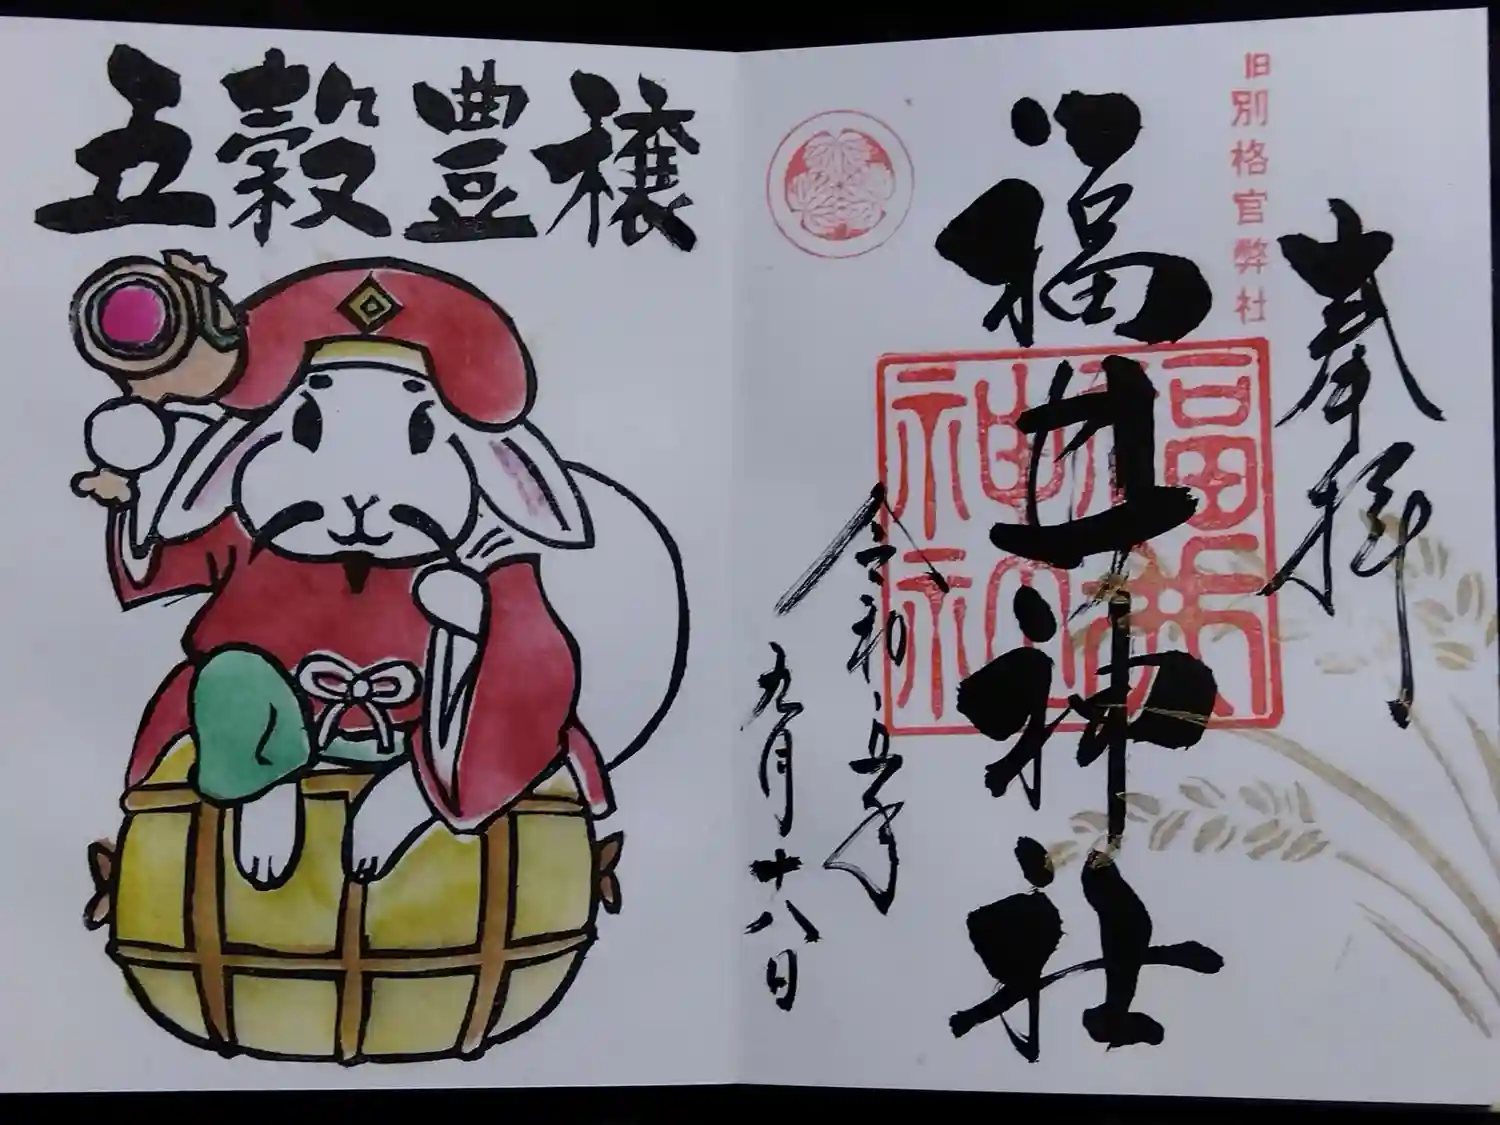 五穀豊穣
奉拝
旧別格官幣社
福井神社
福井神社
令和五年
九月十八日